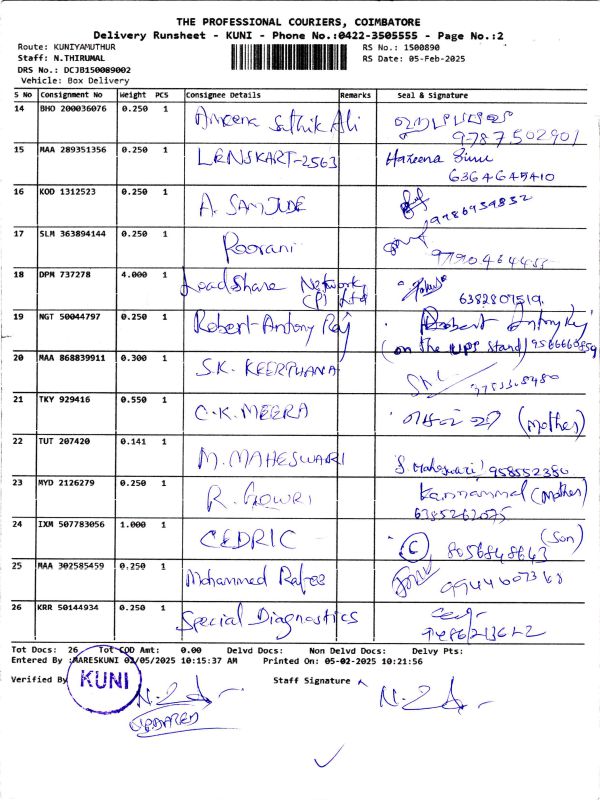 THE PROFESSIONAL COURIERS, COIMBATORE
Delivery Runsheet - KUNI - Phone No.:0422-3505555 - Page No.:2
Route: KUNIYAMUTHUR RS No.: 1500890
Staff: N.THIRUMAL RS Date: 05-Feb-2025
DRS No.: DCJB150089002
Vehicle: Box Delivery
S No Consignment No Weight PCS Consignee Details Remarks Seal & Signature
14 BHO 200036076 0.250 1 Ameena Sathik Ali
9787502901
15 MAA 289351356 0.250 1 LENSKART-2563 Hareena Sinu
6364645410
16 KOD 1312523 0.250 1 A. SAM JUDE
17 SLM 363894144 0.250 1 Poorani
18 DPM 737278 4.000 1 Loadshare Network
(P) Ltd
19 NGT 50044797 0.250 1 Robert-Antony Raj Robert Antony Raj
(on the UPS stand)
20 MAA 868839911 0.300 1 S.K. KEERTHANA
21 TKY 929416 0.550 1 C.K. MEERA (mother)
22 TUT 207420 0.141 1 M. MAHESWARI S. Maheswari 958552380
23 MYD 2126279 0.250 1 R. GOWRI Kannammal (Mother)
6385262075
24 IXM 507783056 1.000 1 CEDRIC C (Son)
8056848643
25 MAA 302585459 0.250 1 Mohammed Rafee
26 KRR 50144934 0.250 1 Special Diagnostics
Tot Docs: 26 Tot COD Amt: 0.00 Delvd Docs: Non Delvd Docs: Delvy Pts:
Entered By :MARESKUNI 02/05/2025 10:15:37 AM Printed On: 05-02-2025 10:21:56
Verified By KUNI Staff Signature
UPDATED